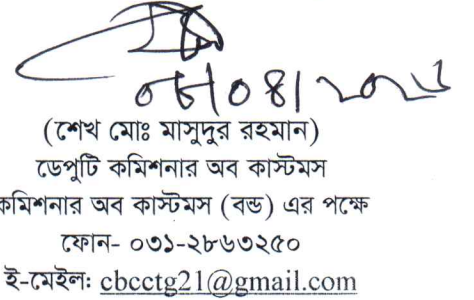 ০৮/০৪/২০২৬
(শেখ মোঃ মাসুদুর রহমান)
ডেপুটি কমিশনার অব কাস্টমস
কমিশনার অব কাস্টমস (বন্ড) এর পক্ষে
ফোন- ০৩১-২৮৬৩২৫০
ই-মেইলঃ cbcctg21@gmail.com